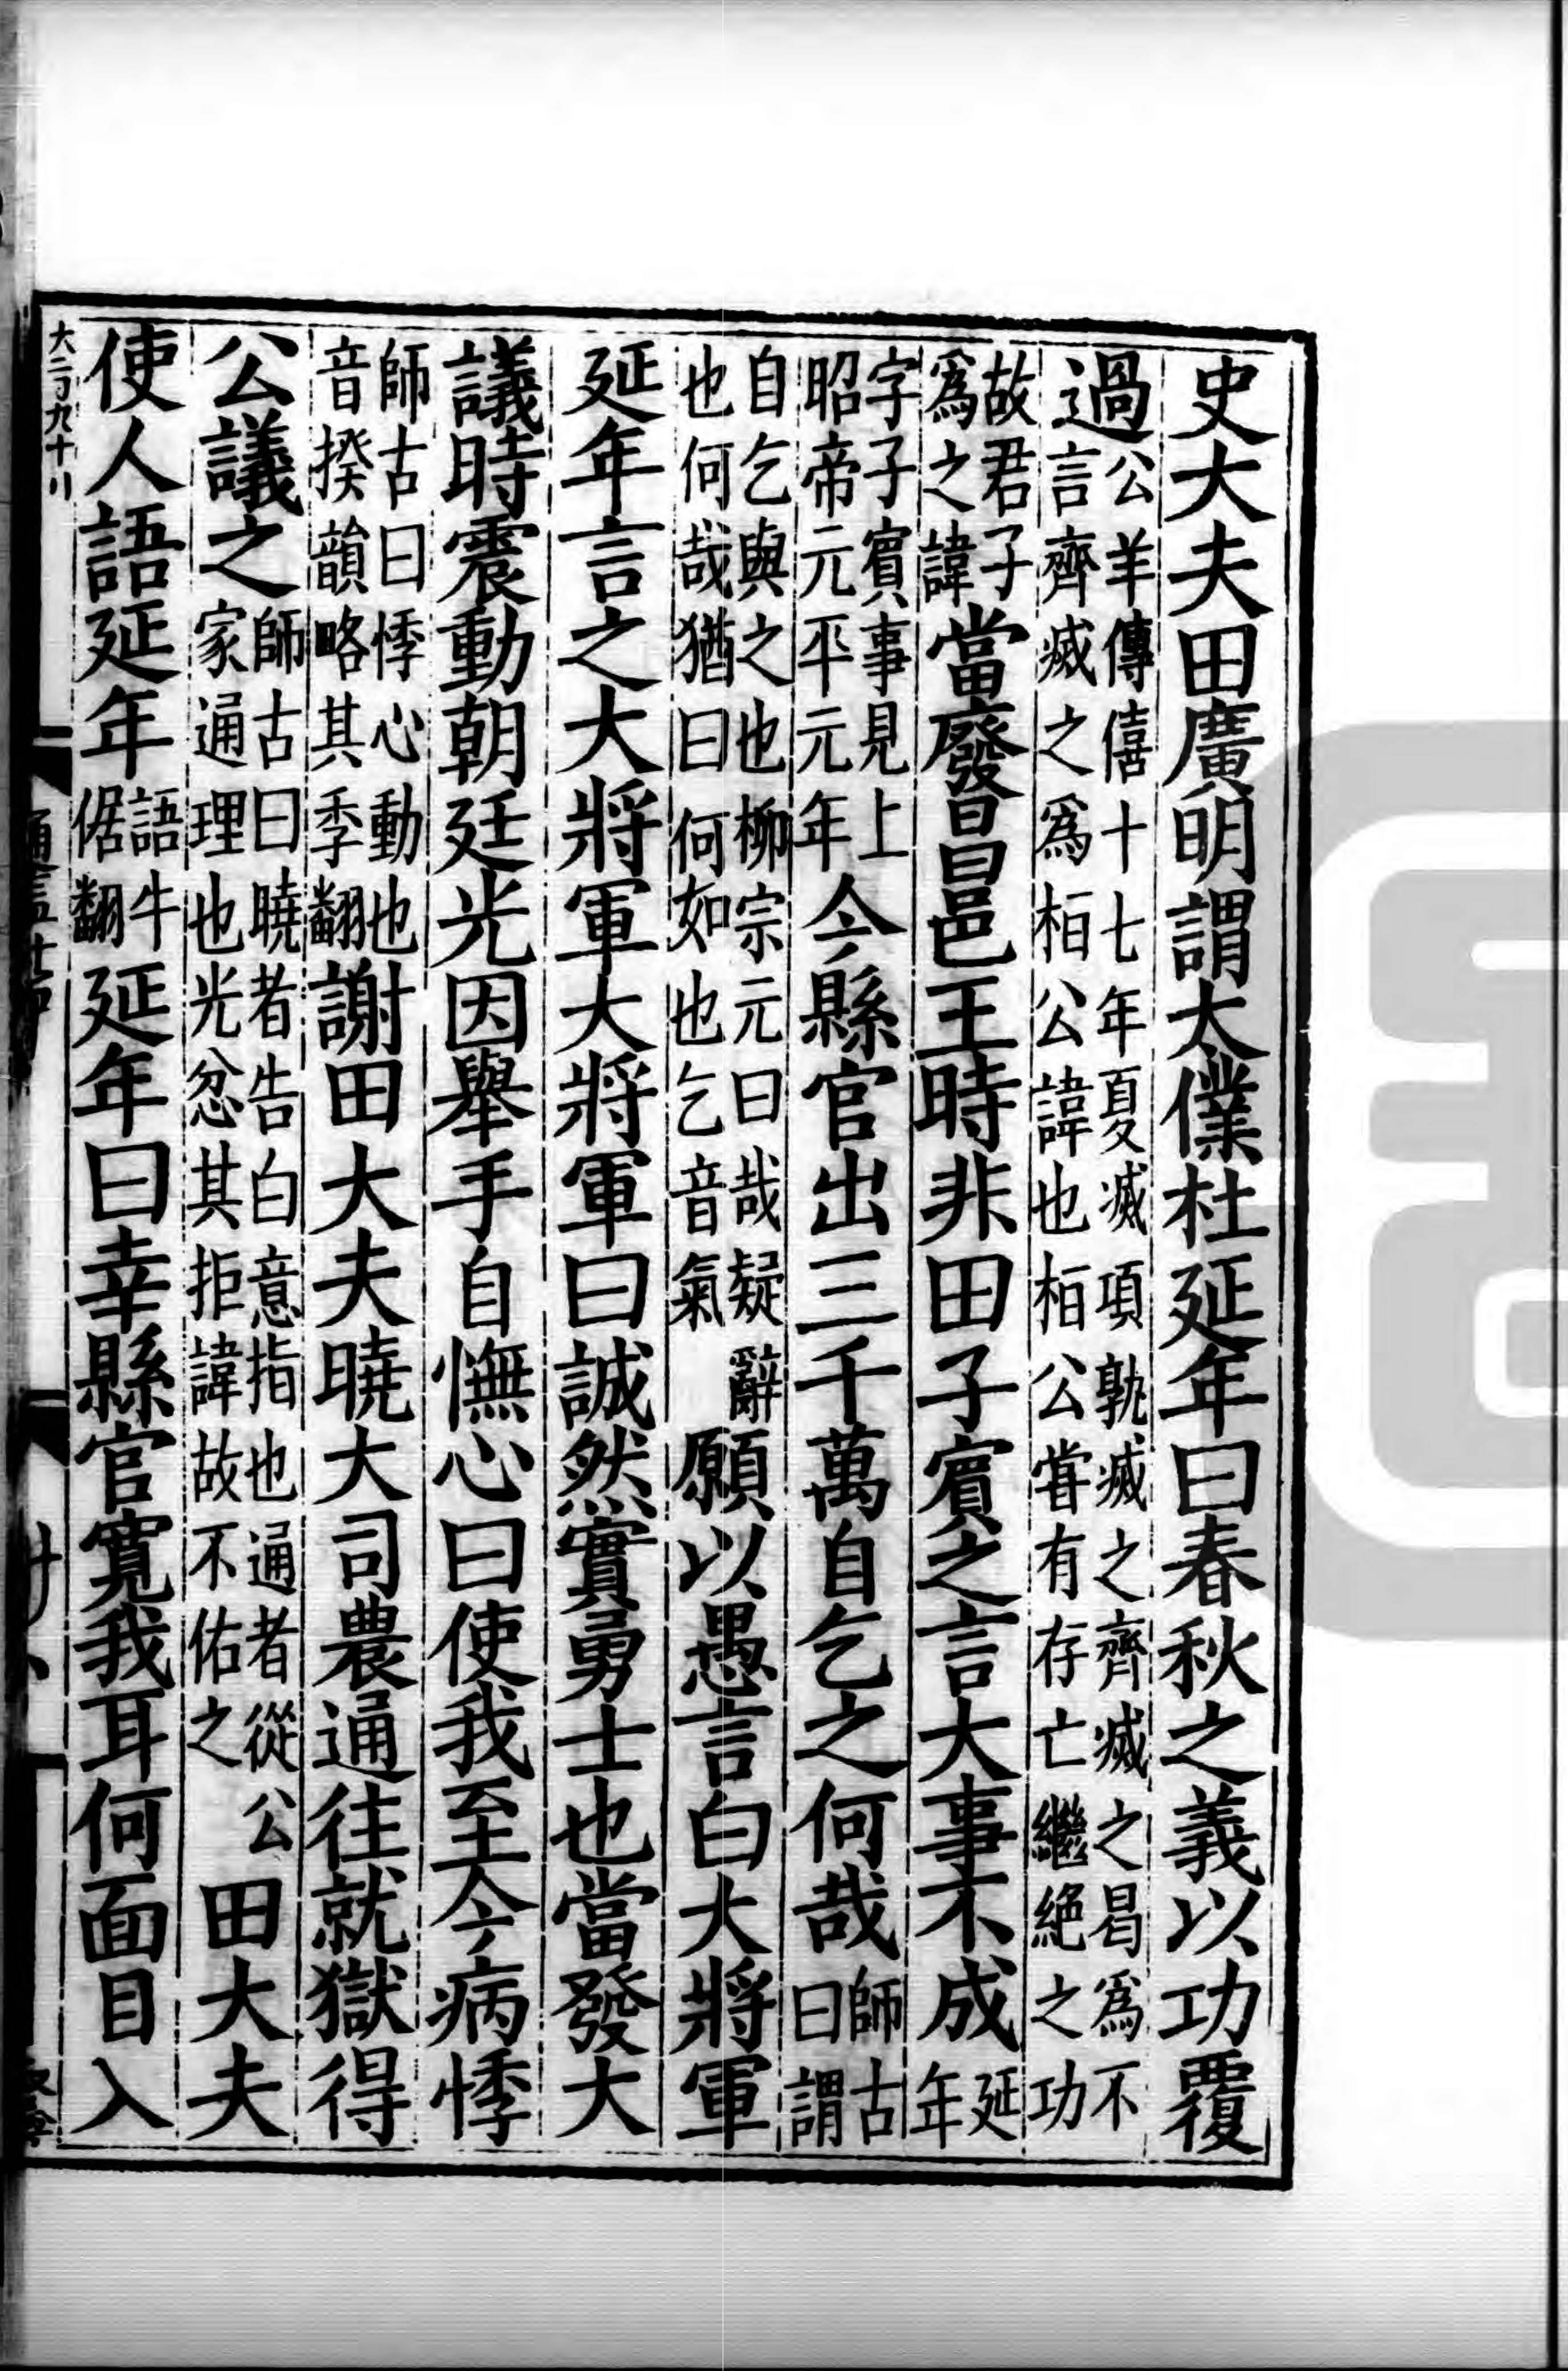 史大夫田廣明謂太僕杜延年曰春秋之義以功覆
過公羊傳僖十七年夏滅項孰滅之齊滅之曷爲不言齊滅之爲桓公諱也桓公甞有存亡繼絶之功
故君子爲之諱當廢昌邑王時非田子賓之言大事不成延年
字子賓事見上昭帝元平元年今縣官出三千萬自乞之何哉師古曰謂
自乞與之也柳宗元曰哉疑辭也何哉猶曰何如也乞音氣願以愚言白大將軍
延年言之大將軍大將軍曰誠然實勇士也當發大
議時震動朝廷光因舉手自憮心曰使我至今病悸
師古曰悸心動也音揆韻略其季翻謝田大夫曉大司農通往就獄得
公議之師古曰曉者告白意指也通者從公家通理也光忿其拒諱故不佑之田大夫
使人語延年語牛倨翻延年曰幸縣官寬我耳何面目入